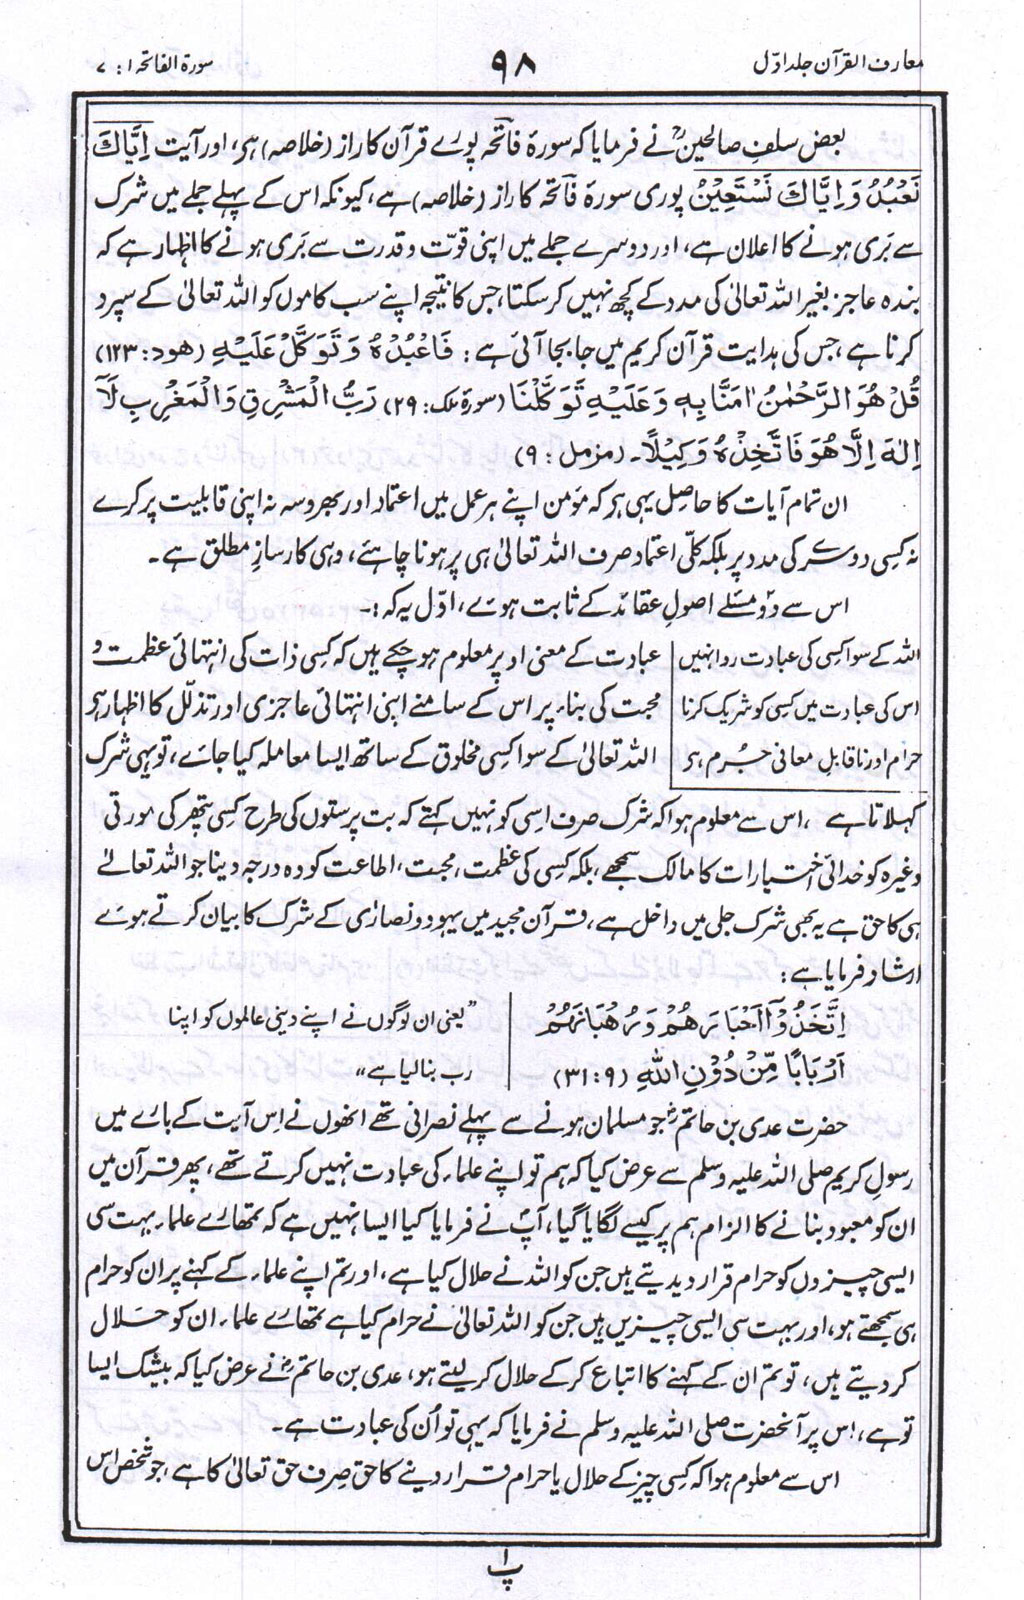 معارف القرآن جلد اوّل
۹۸
سورۃ الفاتحہ ۱: ۷
بعض سلفِ صالحینؒ نے فرمایا کہ سورۂ فاتحہ پورے قرآن کا راز (خلاصہ) ہی، اور آیت اِيَّاكَ
نَعْبُدُ وَاِيَّاكَ نَسْتَعِيْنُ پوری سورۂ فاتحہ کا راز (خلاصہ) ہے، کیونکہ اس کے پہلے جملے میں شرک
سے بَری ہونے کا اعلان ہے، اور دوسرے جملے میں اپنی قوّت و قدرت سے بَری ہونے کا اظہار ہے کہ
بندہ عاجز بغیر اللہ تعالیٰ کی مدد کے کچھ نہیں کرسکتا، جس کا نتیجہ اپنے سب کاموں کو اللہ تعالیٰ کے سپرد
کرنا ہے، جس کی ہدایت قرآن کریم میں جا بجا آئی ہے: فَاعْبُدْهُ وَتَوَكَّلْ عَلَيْهِ (ھود: ۱۲۳)
قُلْ هُوَ الرَّحْمٰنُ اٰمَنَّا بِهٖ وَعَلَيْهِ تَوَكَّلْنَا (سورۂ ملک: ۲۹) رَبُّ الْمَشْرِقِ وَالْمَغْرِبِ لَآ
اِلٰهَ اِلَّا هُوَ فَاتَّخِذْهُ وَكِيْلًا۔ (مزمل: ۹)
ان تمام آیات کا حاصل یہی ہے کہ مؤمن اپنے ہر عمل میں اعتماد اور بھروسہ نہ اپنی قابلیت پر کرے
نہ کسی دوسرے کی مدد پر بلکہ کلّی اعتماد صرف اللہ تعالیٰ ہی پر ہونا چاہئے، وہی کارسازِ مطلق ہے۔
اس سے دو مسئلے اصولِ عقائد کے ثابت ہوئے، اوّل یہ کہ:۔
اللہ کے سوا کسی کی عبادت روا نہیں
اس کی عبادت میں کسی کو شریک کرنا
حرام اور ناقابلِ معافی جُرم ہے
عبادت کے معنی اوپر معلوم ہو چکے ہیں کہ کسی ذات کی انتہائی عظمت و
محبت کی بناء پر اس کے سامنے اپنی انتہائی عاجزی اور تذلّل کا اظہار ہی
اللہ تعالیٰ کے سوا کسی مخلوق کے ساتھ ایسا معاملہ کیا جائے، تو یہی شرک
کہلاتا ہے، اس سے معلوم ہوا کہ شرک صرف اسی کو نہیں کہتے کہ بت پرستوں کی طرح کسی پتھر کی مورتی
وغیرہ کو خدائی اختیارات کا مالک سمجھے، بلکہ کسی کی عظمت، محبت، اطاعت کو وہ درجہ دینا جو اللہ تعالےٰ
ہی کا حق ہے یہ بھی شرک جلی میں داخل ہے، قرآن مجید میں یہود و نصاریٰ کے شرک کا بیان کرتے ہوئے
ارشاد فرمایا ہے:
اِتَّخَذُوْٓا اَحْبَارَهُمْ وَرُهْبَانَهُمْ
اَرْبَابًا مِّنْ دُوْنِ اللهِ (۳۱:۹)
”یعنی ان لوگوں نے اپنے دینی عالموں کو اپنا
رب بنا لیا ہے“
حضرت عدی بن حاتمؓ جو مسلمان ہونے سے پہلے نصرانی تھے انھوں نے اس آیت کے بارے میں
رسولِ کریم صلی اللہ علیہ وسلم سے عرض کیا کہ ہم تو اپنے علماء کی عبادت نہیں کرتے تھے، پھر قرآن میں
ان کو معبود بنانے کا الزام ہم پر کیسے لگایا گیا، آپؐ نے فرمایا کیا ایسا نہیں ہے کہ تمھارے علماء بہت سی
ایسی چیزوں کو حرام قرار دیدیتے ہیں جن کو اللہ نے حلال کیا ہے، اور تم اپنے علماء کے کہنے پر ان کو حرام
ہی سمجھتے ہو، اور بہت سی ایسی چیزیں ہیں جن کو اللہ تعالیٰ نے حرام کیا ہے تمھارے علماء ان کو حلال
کردیتے ہیں، تو تم ان کے کہنے کا اتباع کرکے حلال کرلیتے ہو، عدی بن حاتمؓ نے عرض کیا کہ بیشک ایسا
تو ہے، اس پر آنحضرت صلی اللہ علیہ وسلم نے فرمایا کہ یہی تو اُن کی عبادت ہے۔
اس سے معلوم ہوا کہ کسی چیز کے حلال یا حرام قرار دینے کا حق صرف حق تعالیٰ کا ہے، جو شخص اس
پ